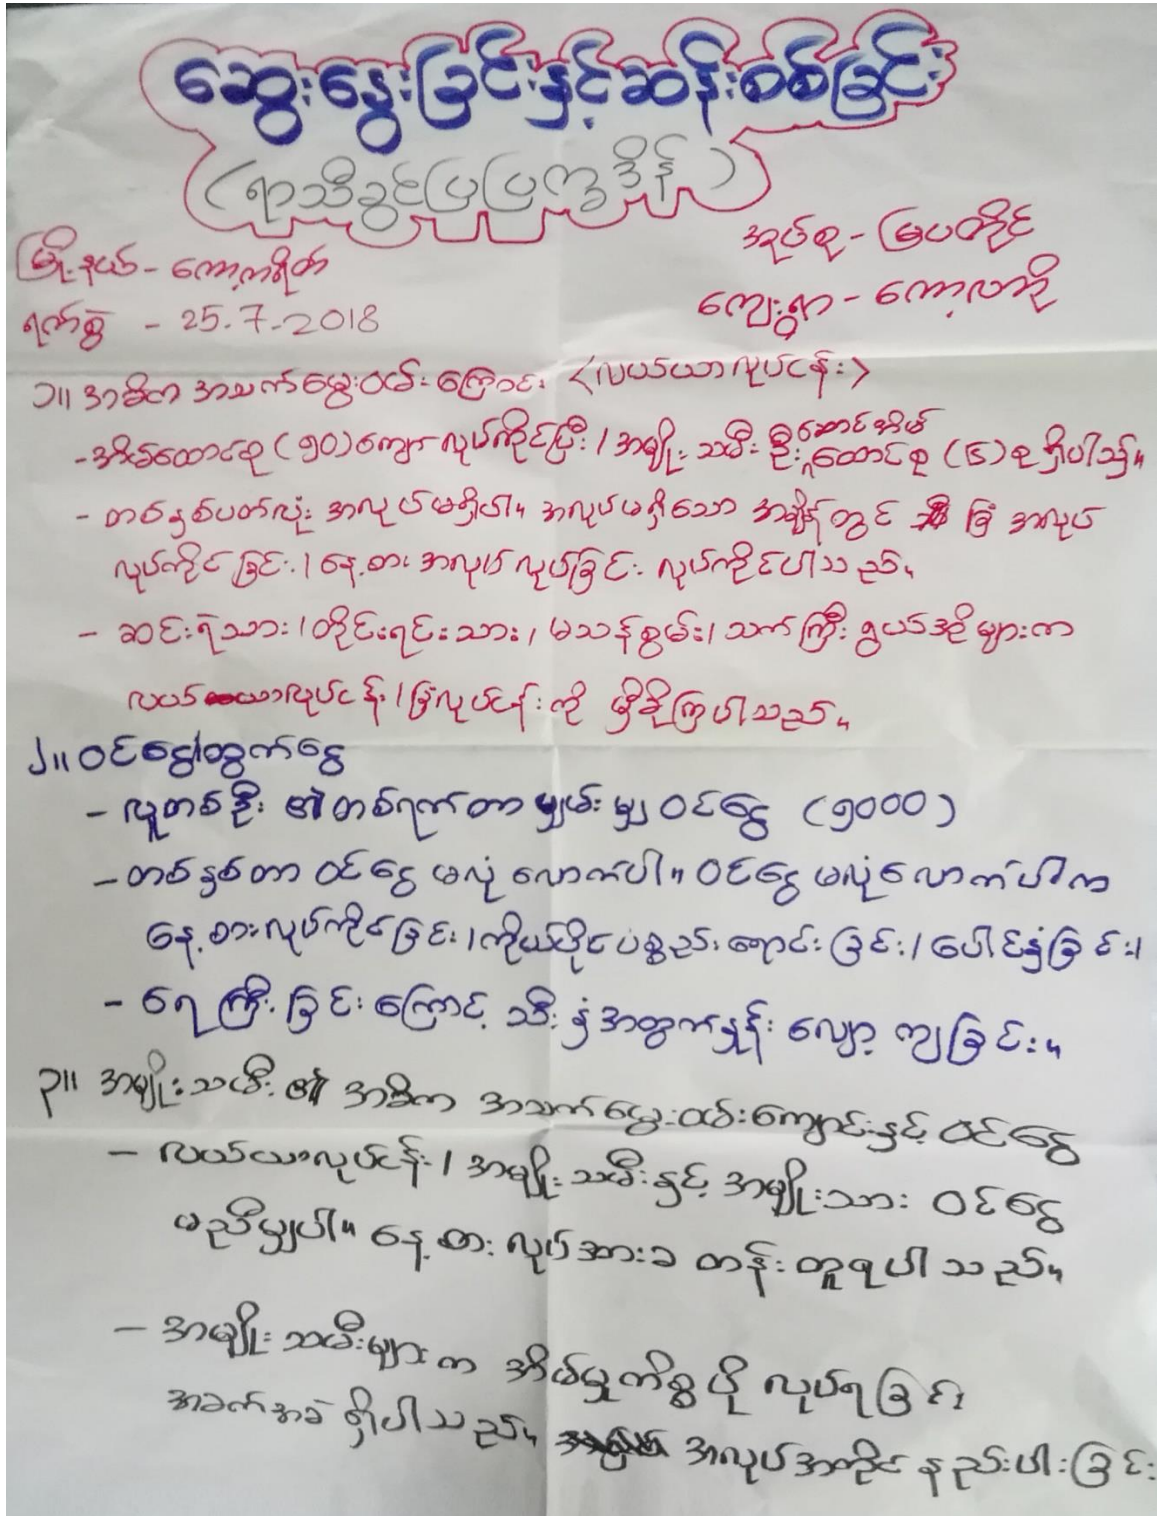 ဆွေးနွေးခြင်းနှင့်ဆန်းစစ်ခြင်း
(ရာသီခွင်ပြပြက္ခဒိန်)
မြို့နယ် - ကော့ကရိတ်
အုပ်စု - မြပတိုင်
ရက်စွဲ - 25.7.2018
ကျေးရွာ - ကော့လာဘို
၁။ အဓိက အသက်မွေးဝမ်းကြောင်း <လယ်ယာလုပ်ငန်း>
- အိမ်ထောင်စု (၅၀) ကျော် လုပ်ကိုင်ပြီး / အမျိုးသမီး ဦးဆောင်အိမ်ထောင်စု (၆) စု ရှိပါသည်။
- တစ်နှစ်ပတ်လုံး အလုပ်မရှိပါ။ အလုပ်မရှိသော အချိန်တွင် ခြံ အလုပ်
လုပ်ကိုင်ခြင်း / နေ့စား အလုပ် လုပ်ခြင်း လုပ်ကိုင်ပါသည်။
- ဆင်းရဲသား / တိုင်းရင်းသား / မသန်စွမ်း / သက်ကြီးရွယ်အိုများက
လယ်ယာလုပ်ငန်း / ခြံလုပ်ငန်းကို မှီခိုကြပါသည်။
၂။ ဝင်ငွေ/ထွက်ငွေ
- လူတစ်ဦး ၏ တစ်ရက်တာ ပျှမ်းမျှ ဝင်ငွေ (၅၀၀၀)
- တစ်နှစ်တာ ဝင်ငွေ မလုံလောက်ပါ။ ဝင်ငွေ မလုံလောက်ပါက
နေ့စားလုပ်ကိုင်ခြင်း / ကိုယ်ပိုင်ပစ္စည်းရောင်းခြင်း / ပေါင်နှံခြင်း /
- ရေကြီးခြင်းကြောင့် သီးနှံအထွက်နှုန်း လျော့ကျခြင်း။
၃။ အမျိုးသမီး ၏ အဓိက အသက်မွေးဝမ်းကျောင်းနှင့် ဝင်ငွေ
- လယ်ယာလုပ်ငန်း / အမျိုးသမီးနှင့် အမျိုးသား ဝင်ငွေ
မညီမျှပါ။ နေ့စား လုပ်အားခ တန်းတူရပါသည်။
- အမျိုးသမီးများက အိမ်မှုကိစ္စ ပို လုပ်ရခြင်း
အခက်အခဲ ရှိပါသည်။ အလုပ်အကိုင် နည်းပါးခြင်း